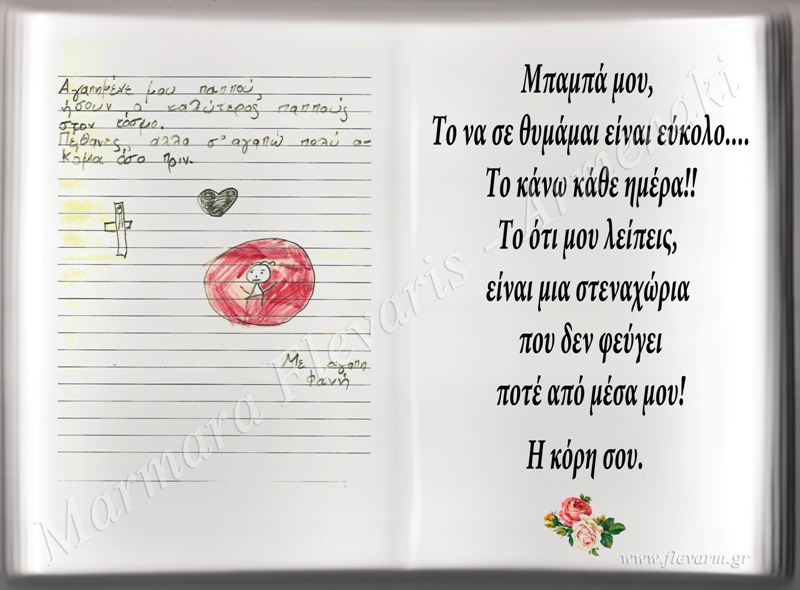 Αγαπημένε μου παππού,
ήσουν ο καλύτερος παππούς
στον κόσμο.
Πέθανες, αλλα σ'αγαπώ πολύ α-
κόμα όσο πριν.
Με αγαπη
Φανή
Μπαμπά μου,
Το να σε θυμάμαι είναι εύκολο....
Το κάνω κάθε ημέρα!!
Το ότι μου λείπεις,
είναι μια στεναχώρια
που δεν φεύγει
ποτέ από μέσα μου!
Η κόρη σου.
Marmara Flevaris - Armenaki
www.flevarm.gr